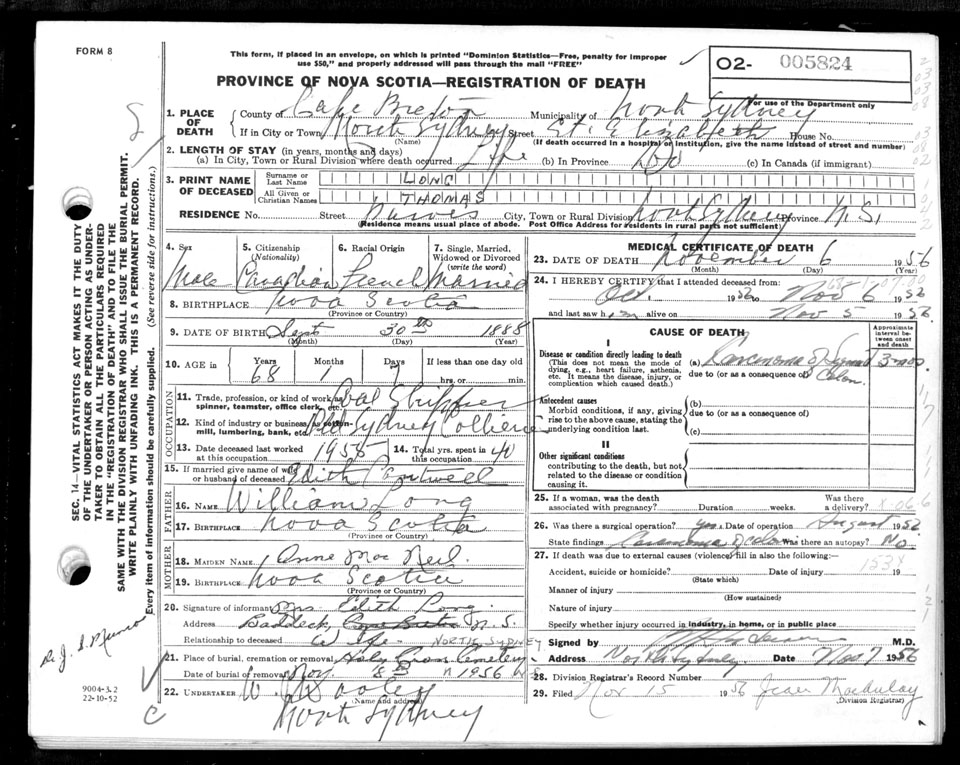 FORM 8
This form, if placed in an envelope, on which is printed "Dominion Statistics—Free, penalty for improper
use $50," and properly addressed will pass through the mail "FREE"
O2- 005824
For use of the Department only
PROVINCE OF NOVA SCOTIA—REGISTRATION OF DEATH
1. PLACE OF DEATH
County of Cape Breton Municipality of North Sydney
If in City or Town North Sydney Street St. Elizabeth House No.
(Name) (If death occurred in a hospital or institution, give the name instead of street and number)
2. LENGTH OF STAY (in years, months and days)
(a) In City, Town or Rural Division where death occurred Life (b) In Province (c) In Canada (if immigrant)
3. PRINT NAME OF DECEASED
Surname or Last Name LONG
All Given or Christian Names THOMAS
RESIDENCE No. Street Purves City, Town or Rural Division North Sydney Province N.S.
(Residence means usual place of abode. Post Office Address for residents in rural parts not sufficient)
4. Sex Male
5. Citizenship (Nationality) Canadian
6. Racial Origin French
7. Single, Married, Widowed or Divorced (write the word) Married
8. BIRTHPLACE Nova Scotia
(Province or Country)
9. DATE OF BIRTH Sept 30th 1888
(Month) (Day) (Year)
10. AGE in Years 68 Months 1 Days 7 If less than one day old
hrs. or min.
OCCUPATION
11. Trade, profession, or kind of work as spinner, teamster, office clerk, etc. Coal Shipper
12. Kind of industry or business, as cotton-mill, lumbering, bank, etc. Old Sydney Collieries
13. Date deceased last worked at this occupation 1958
14. Total yrs. spent in this occupation 40
15. If married give name of wife or husband of deceased Edith Cantwell
FATHER
16. NAME William Long
17. BIRTHPLACE Nova Scotia
(Province or Country)
MOTHER
18. MAIDEN NAME Anne Mac Neil
19. BIRTHPLACE Nova Scotia
(Province or Country)
20. Signature of informant Mrs. Edith Long
Address Baddeck, Cape Breton N.S.
Relationship to deceased Wife NORTH SYDNEY
21. Place of burial, cremation or removal Holy Cross Cemetery
Date of burial or removal Nov. 8th 1956 N.S
22. UNDERTAKER W. Dooley
(Name and address)
North Sydney
MEDICAL CERTIFICATE OF DEATH
23. DATE OF DEATH November 6 1956
(Month) (Day) (Year)
24. I HEREBY CERTIFY that I attended deceased from:
Oct. 1956 to Nov 6 1956
and last saw him alive on Nov 5 1956
CAUSE OF DEATH
Approximate interval between onset and death
I
Disease or condition directly leading to death
(This does not mean the mode of dying, e.g., heart failure, asthenia, etc. It means the disease, injury, or complication which caused death.)
(a) Carcinoma of Sigmoid 3 mos
due to (or as a consequence of) Colon.
Antecedent causes
Morbid conditions, if any, giving rise to the above cause, stating the underlying condition last.
(b)
due to (or as a consequence of)
(c)
II
Other significant conditions
contributing to the death, but not related to the disease or condition causing it.
25. If a woman, was the death associated with pregnancy? Duration weeks. Was there a delivery?
26. Was there a surgical operation? yes Date of operation August 1956
State findings Carcinoma of colon Was there an autopsy? No
27. If death was due to external causes (violence) fill in also the following:—
Accident, suicide or homicide? Date of injury 19
(State which)
Manner of injury
(How sustained)
Nature of injury
Specify whether injury occurred in industry, in home, or in public place
Signed by M.D.
Address North Sydney Date Nov 7 1956
28. Division Registrar's Record Number
29. Filed Nov 15 1956 Jean
(Division Registrar)
SEC. 14—VITAL STATISTICS ACT MAKES IT THE DUTY
OF THE UNDERTAKER OR PERSON ACTING AS UNDER-
TAKER TO OBTAIN ALL THE PARTICULARS REQUIRED
IN THE "REGISTRATION OF DEATH" AND TO FILE THE
SAME WITH THE DIVISION REGISTRAR WHO SHALL ISSUE THE BURIAL PERMIT.
WRITE PLAINLY WITH UNFADING INK. THIS IS A PERMANENT RECORD.
Every item of information should be carefully supplied. (See reverse side for instructions.)
Dr J. S. Munro
9004-3.2
22-10-52